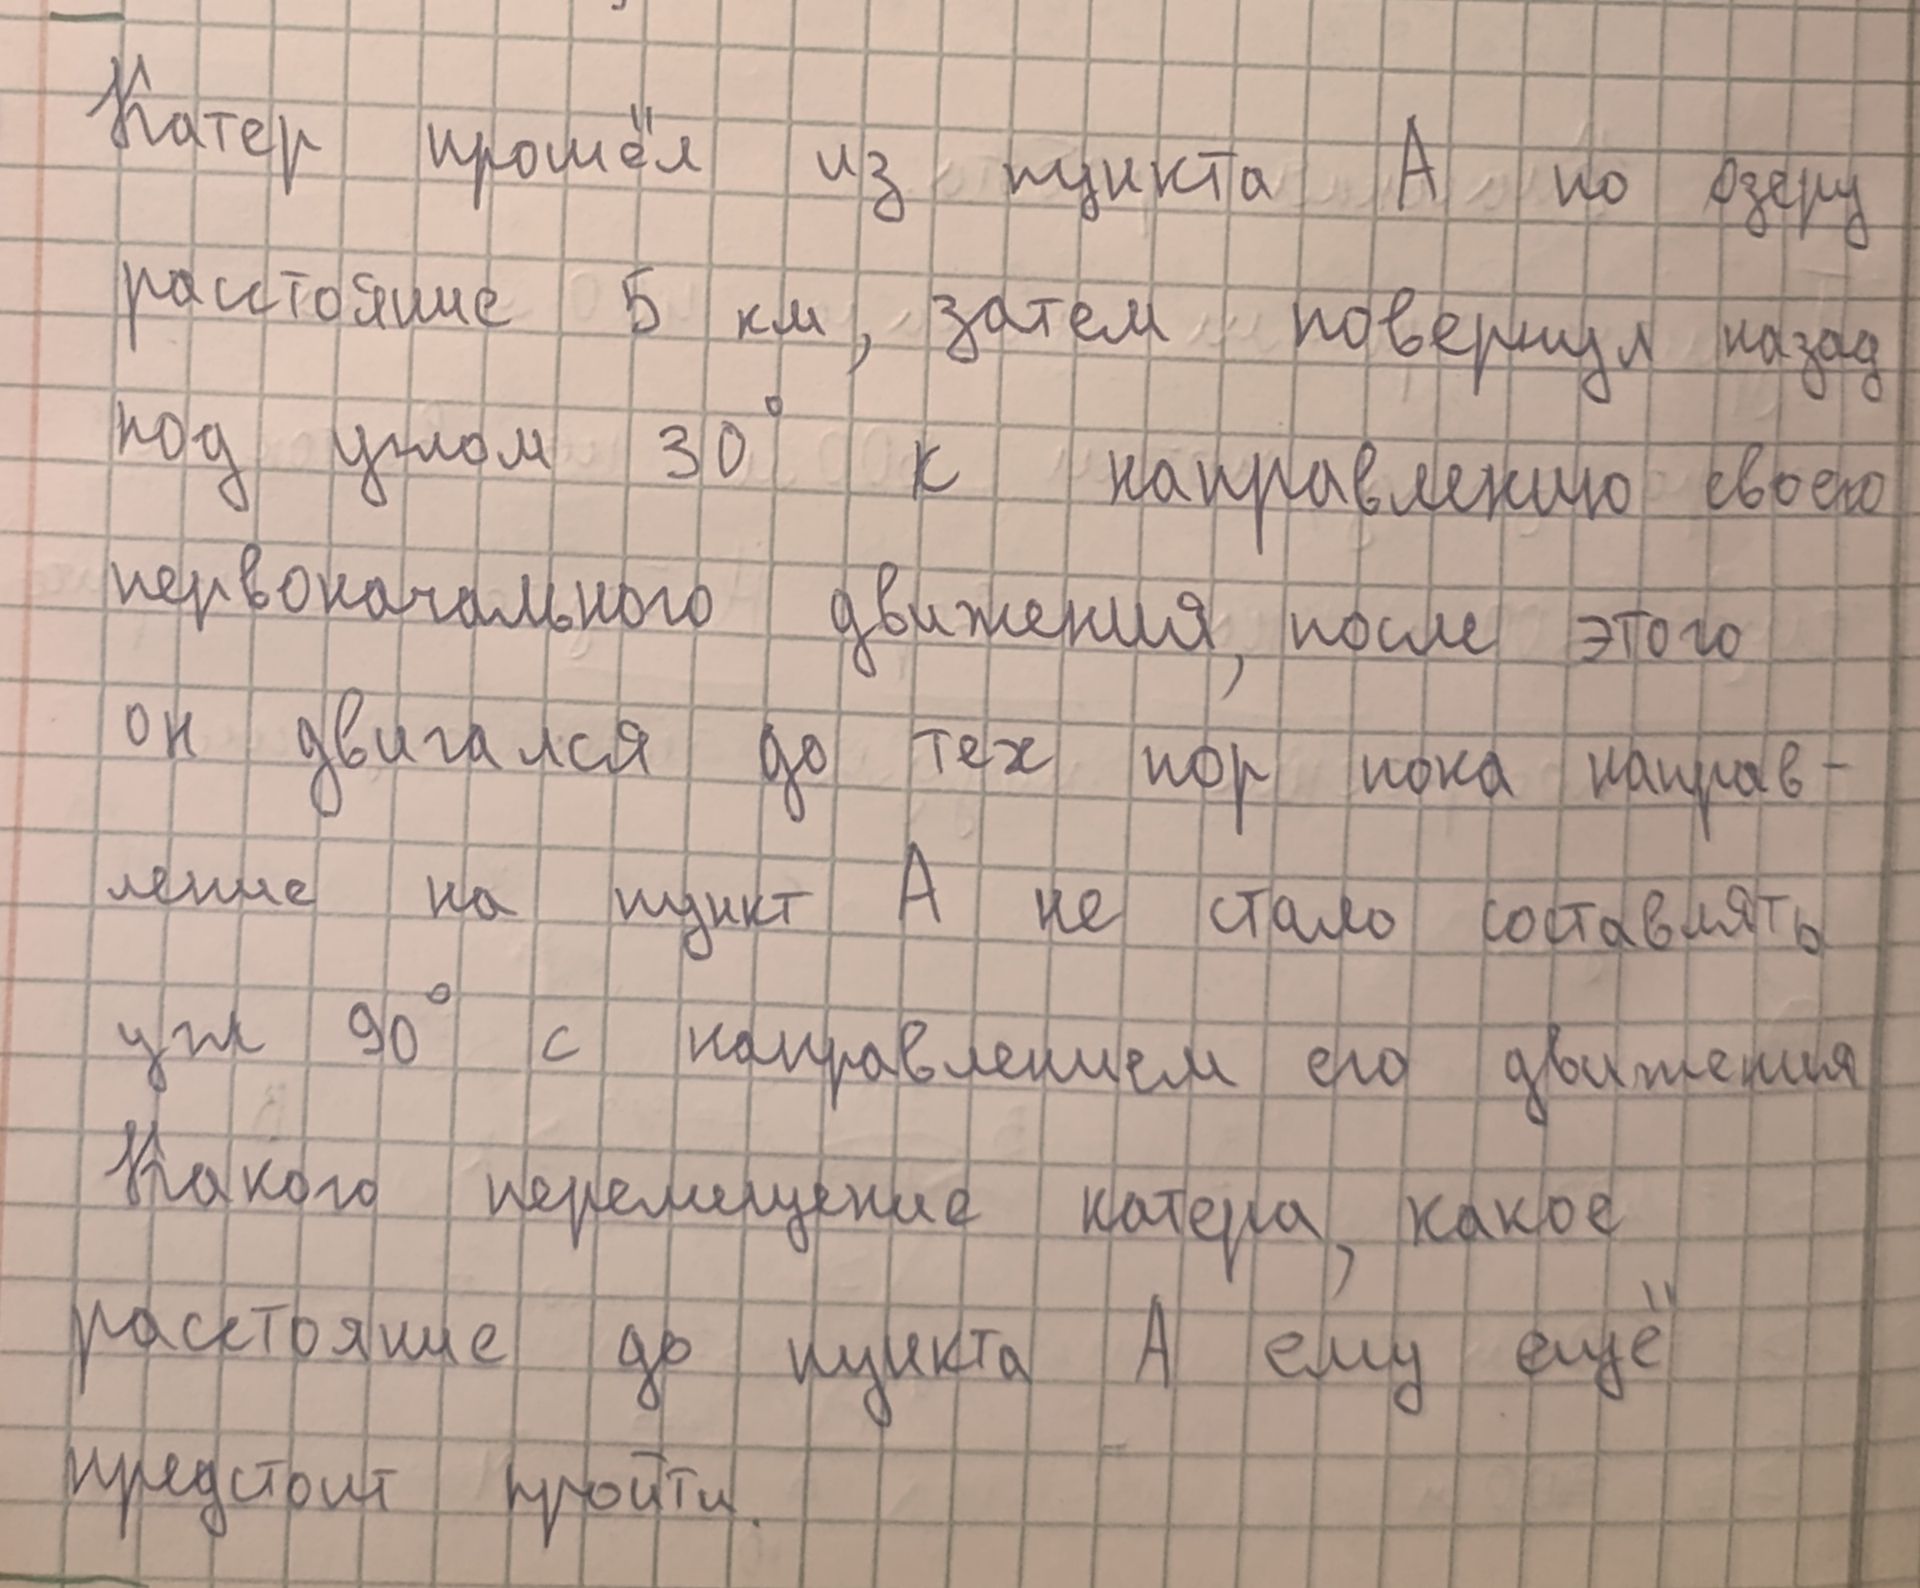 Катер прошёл из пункта А по озеру
расстояние 5 км, затем повернул назад
под углом 30° к направлению своего
первоначального движения, после этого
он двигался до тех пор пока направ-
ление на пункт А не стало составлять
угл 90° с направлением его движения
Какого перемещение катера, какое
расстояние до пункта А ему ещё
предстоит пройти.